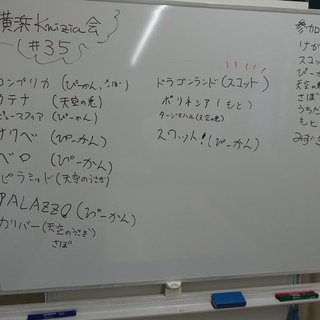 横浜Knizia会
#35
コンプリカ(ぴーかん、さぼ)
カテナ(天空の兎)
ピューマフィア(ぴーかん)
(ぴーかん)
ベロ(ぴーかん)
ピラミッド(天空のうさぎ)
PALAZZO(ぴーかん)
カリバー(天空のうさぎ)
さぼ
ドラゴンランド(スコット)
ポリネシア(もと)
タージマハル(天空の兎)
スクット!(ぴーかん)
参加
けが
スコッ
ぴーか
天空の
さぼ
うちだ
もと